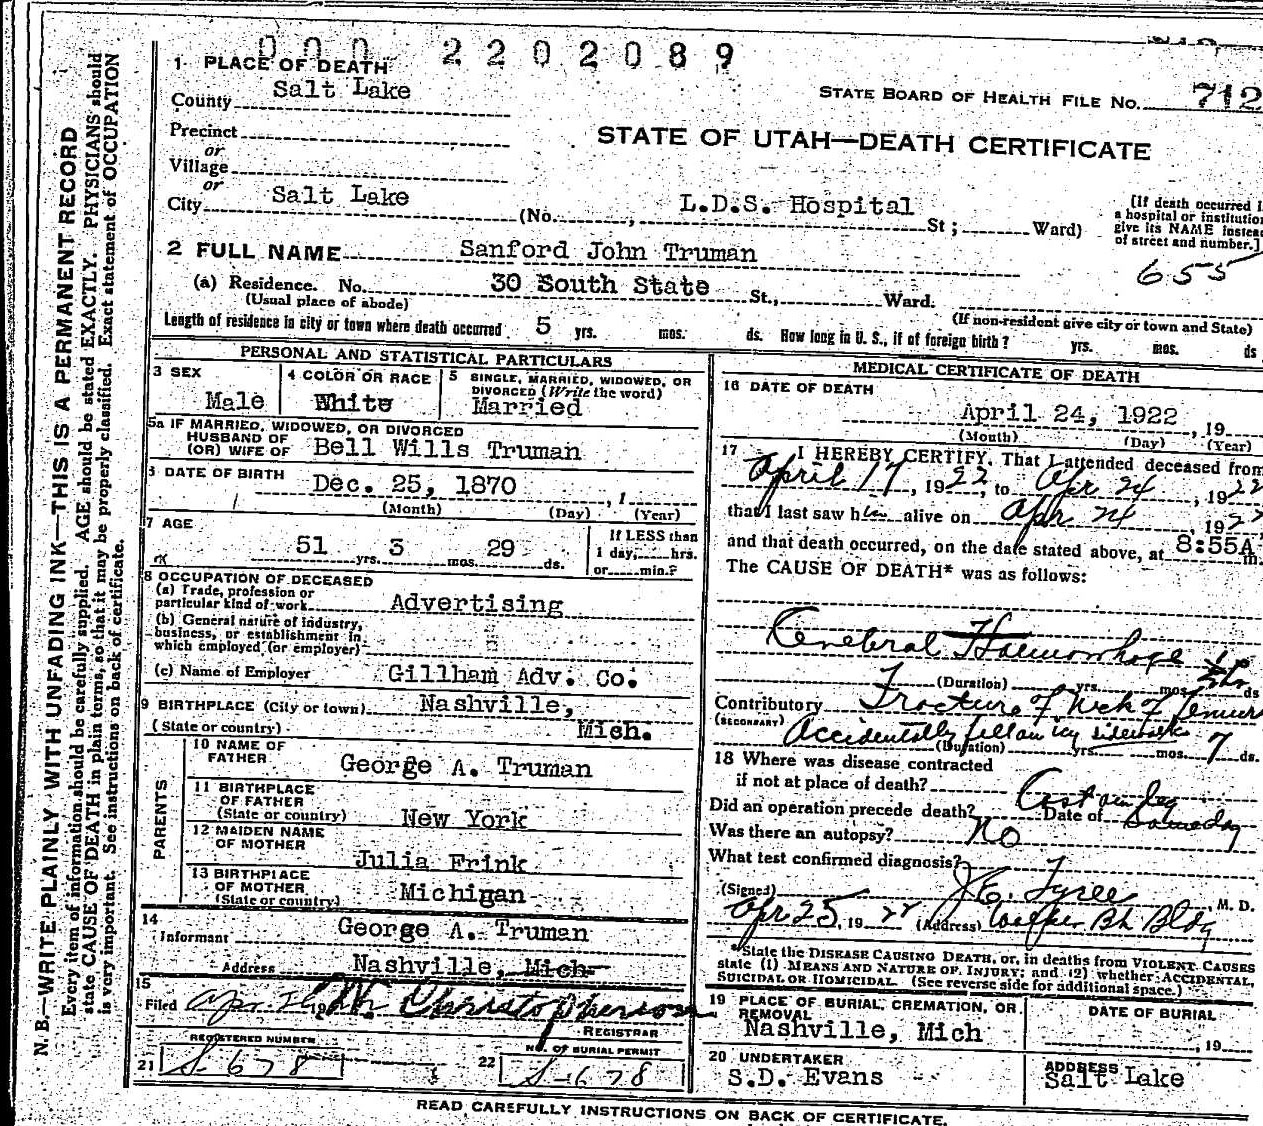 000 2202089
1 PLACE OF DEATH
County Salt Lake
STATE BOARD OF HEALTH FILE NO. 712
Precinct
or
STATE OF UTAH—DEATH CERTIFICATE
Village
or
City Salt Lake (No. , L.D.S. Hospital St; Ward)
[If death occurred i
a hospital or institution
give its NAME instead
of street and number.]
2 FULL NAME Sanford John Truman
655
(a) Residence. No. 30 South State St., Ward.
(Usual place of abode)
(If non-resident give city or town and State)
Length of residence in city or town where death occurred 5 yrs. mos. ds. How long in U. S., if of foreign birth? yrs. mos. ds
PERSONAL AND STATISTICAL PARTICULARS
3 SEX
Male
4 COLOR OR RACE
White
5 SINGLE, MARRIED, WIDOWED, OR
DIVORCED (Write the word)
Married
5a IF MARRIED, WIDOWED, OR DIVORCED
HUSBAND OF
(OR) WIFE OF Bell Wills Truman
DATE OF BIRTH
Dec. 25, 1870 , 1
(Month) (Day) (Year)
7 AGE
51 yrs. 3 mos. 29 ds.
If LESS than
1 day, hrs.
or min.?
8 OCCUPATION OF DECEASED
(a) Trade, profession or
particular kind of work Advertising
(b) General nature of industry,
business, or establishment in
which employed (or employer)
(c) Name of Employer Gillham Adv. Co.
9 BIRTHPLACE (City or town) Nashville,
(State or country) Mich.
PARENTS
10 NAME OF
FATHER George A. Truman
11 BIRTHPLACE
OF FATHER
(State or country) New York
12 MAIDEN NAME
OF MOTHER
Julia Frink
13 BIRTHPLACE
OF MOTHER
(State or country) Michigan
14
Informant George A. Truman
Address Nashville, Mich
15
Filed Christopherson
REGISTRAR
REGISTERED NUMBER
21 S-678
NO. OF BURIAL PERMIT
22 S-678
MEDICAL CERTIFICATE OF DEATH
16 DATE OF DEATH
April 24, 1922 , 19
(Month) (Day) (Year)
17 I HEREBY CERTIFY, That I attended deceased from
April 17, 1922, to Apr 24, 1922
that I last saw him alive on Apr 24, 1922
and that death occurred, on the date stated above, at 8:55A m.
The CAUSE OF DEATH* was as follows:
Cerebral Haemorrhage 1/2 hr
(Duration) yrs. mos. ds
Contributory Fracture of Neck of femur
(SECONDARY) Accidentally fell on icy sidewalk
(Duration) yrs. mos. 7 ds.
18 Where was disease contracted
if not at place of death?
Did an operation precede death? Cast on leg Date of Same day
Was there an autopsy? no
What test confirmed diagnosis?
(Signed) J. E. Tyree, M. D.
Apr 25, 19 22 (Address) Bk Bldg
*State the DISEASE CAUSING DEATH, or, in deaths from VIOLENT CAUSES
state (1) MEANS AND NATURE OF INJURY; and (2) whether ACCIDENTAL,
SUICIDAL OR HOMICIDAL. (See reverse side for additional space.)
19 PLACE OF BURIAL, CREMATION, OR
REMOVAL
Nashville, Mich
DATE OF BURIAL
, 19
20 UNDERTAKER
S.D. Evans
ADDRESS
Salt Lake
READ CAREFULLY INSTRUCTIONS ON BACK OF CERTIFICATE.
N. B.—WRITE PLAINLY WITH UNFADING INK—THIS IS A PERMANENT RECORD
Every item of information should be carefully supplied. AGE should be stated EXACTLY. PHYSICIANS should
state CAUSE OF DEATH in plain terms, so that it may be properly classified. Exact statement of OCCUPATION
is very important. See instructions on back of certificate.